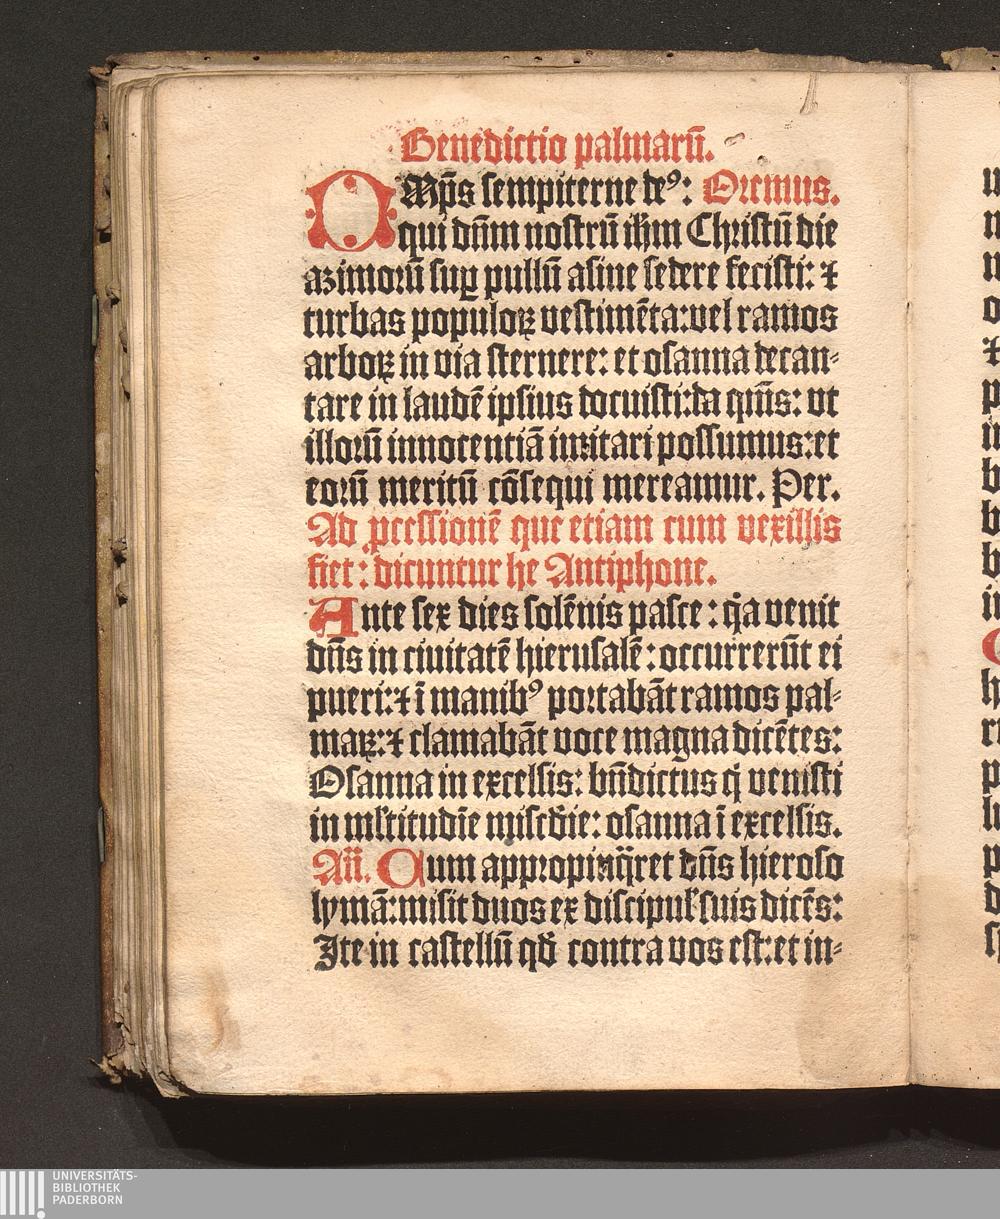 Benedictio palmarū.
OMp̄s sempiterne deꝰ: Oremus.
qui dn̄m nostrū ih̄m Christū die
azimorū suꝑ pullū asine sedere fecisti: ⁊
turbas populoꝝ vestimēta: vel ramos
arboꝝ in via sternere: et osanna decan⸗
tare in laudē ipsius docuisti: da qm̄s: vt
illorū innocentiā imitari possumus: et
eorū meritū cōsequi mereamur. Per.
Ad ꝓcessionē que etiam cum vexillis
fiet: dicuntur he Antiphone.
Ante sex dies solēnis pasce: q̄a venit
dn̄s in ciuitatē hierusalē: occurrerūt ei
pueri: ⁊ ī manibꝰ portabāt ramos pal⸗
maꝝ: ⁊ clamabāt voce magna dicētes:
Osanna in excelsis: bn̄dictus q̄ venisti
in ml̄titudīe mīsc̄die: osanna ī excelsis.
Añ. Cum appropinq̄ret dn̄s hieroso
lymā: misit duos ex discipul' suis dicēs:
Ite in castellū qď contra vos est: et in⸗
UNIVERSITÄTS-
BIBLIOTHEK
PADERBORN